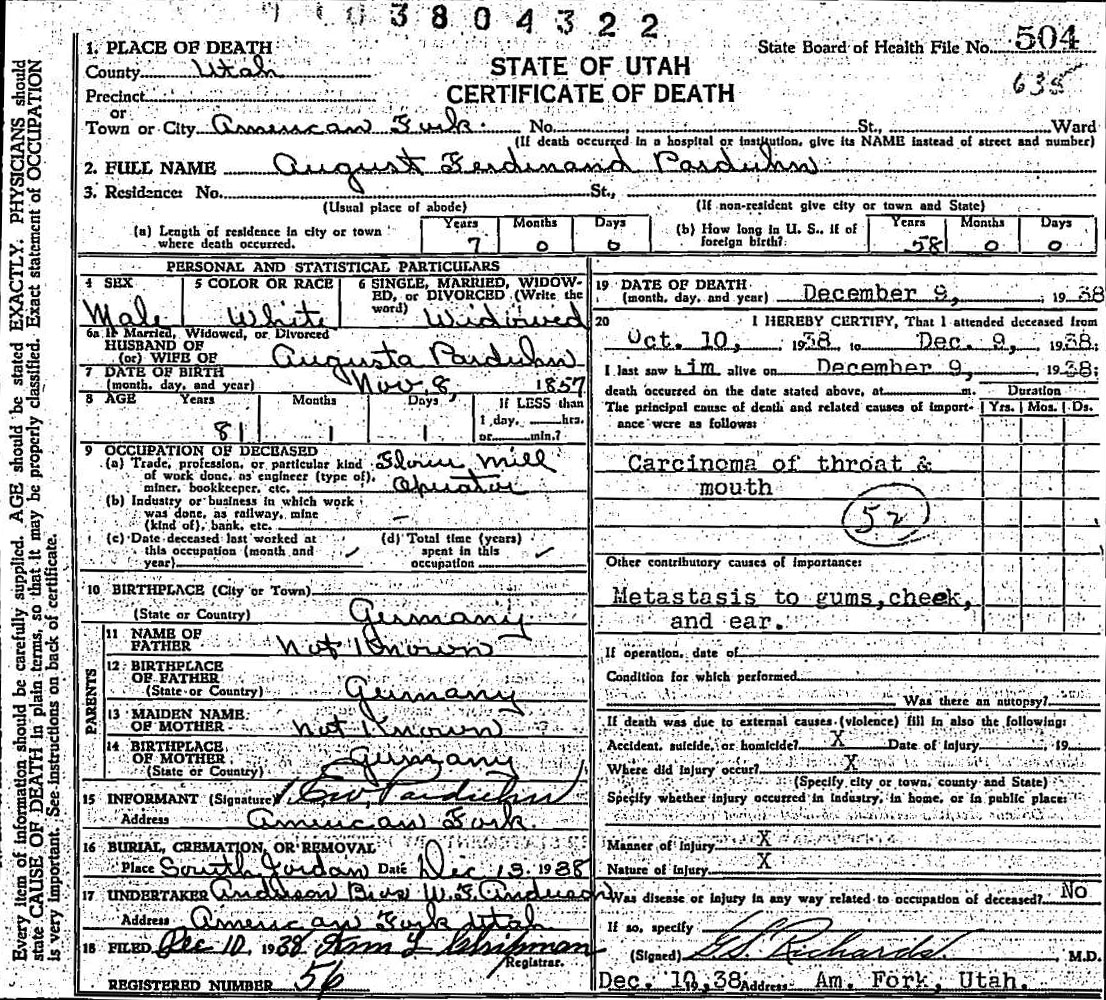 3804322
State Board of Health File No. 504
635
STATE OF UTAH
CERTIFICATE OF DEATH
1. PLACE OF DEATH
County Utah
Precinct
or
Town or City American Fork. No. St., Ward
(If death occurred in a hospital or institution, give its NAME instead of street and number)
2. FULL NAME August Ferdinand Parduhn
3. Residence: No. St.,
(Usual place of abode) (If non-resident give city or town and State)
(a) Length of residence in city or town where death occurred. Years 7 Months 0 Days 0
(b) How long in U. S., if of foreign birth? Years 58 Months 0 Days 0
PERSONAL AND STATISTICAL PARTICULARS
4 SEX Male
5 COLOR OR RACE White
6 SINGLE, MARRIED, WIDOWED, or DIVORCED (Write the word) Widowed
6a If Married, Widowed, or Divorced
HUSBAND OF
(or) WIFE OF Augusta Parduhn
7 DATE OF BIRTH
(month, day, and year) Nov. 8, 1857
8 AGE Years 81 Months 1 Days 1 If LESS than
1 day, hrs.
or min.?
9 OCCUPATION OF DECEASED
(a) Trade, profession, or particular kind of work done, as engineer (type of), miner, bookkeeper, etc. Flour Mill Operator
(b) Industry or business in which work was done, as railway, mine (kind of), bank, etc. —
(c) Date deceased last worked at this occupation (month and year) ✓
(d) Total time (years) spent in this occupation ✓
10 BIRTHPLACE (City or Town)
(State or Country) Germany
PARENTS
11 NAME OF FATHER Not Known
12 BIRTHPLACE OF FATHER
(State or Country) Germany
13 MAIDEN NAME OF MOTHER Not Known
14 BIRTHPLACE OF MOTHER
(State or Country) Germany
15 INFORMANT (Signature) Parduhn
Address American Fork.
16 BURIAL, CREMATION, OR REMOVAL
Place South Jordan Date Dec 13, 1938
17 UNDERTAKER Anderson Bros W. E. Anderson
Address American Fork Utah
18 FILED Dec 10, 1938 Chipman
Registrar.
REGISTERED NUMBER 56
19 DATE OF DEATH
(month, day, and year) December 9, 1938
20 I HEREBY CERTIFY, That I attended deceased from
Oct. 10, 1938, to Dec. 9, 1938;
I last saw him alive on December 9, 1938;
death occurred on the date stated above, at m. Duration
The principal cause of death and related causes of importance were as follows: Yrs. Mos. Ds.
Carcinoma of throat &
mouth
52
Other contributory causes of importance:
Metastasis to gums, cheek,
and ear.
If operation, date of
Condition for which performed
Was there an autopsy?
If death was due to external causes (violence) fill in also the following:
Accident, suicide, or homicide? X Date of injury , 19
Where did injury occur? X
(Specify city or town, county and State)
Specify whether injury occurred in industry, in home, or in public place:
Manner of injury X
Nature of injury X
Was disease or injury in any way related to occupation of deceased? No
If so, specify
(Signed) G.S. Richards M.D.
Dec. 10, 38 Address: Am. Fork, Utah.
Every item of information should be carefully supplied. AGE should be stated EXACTLY. PHYSICIANS should
state CAUSE OF DEATH in plain terms, so that it may be properly classified. Exact statement of OCCUPATION
is very important. See instructions on back of certificate.